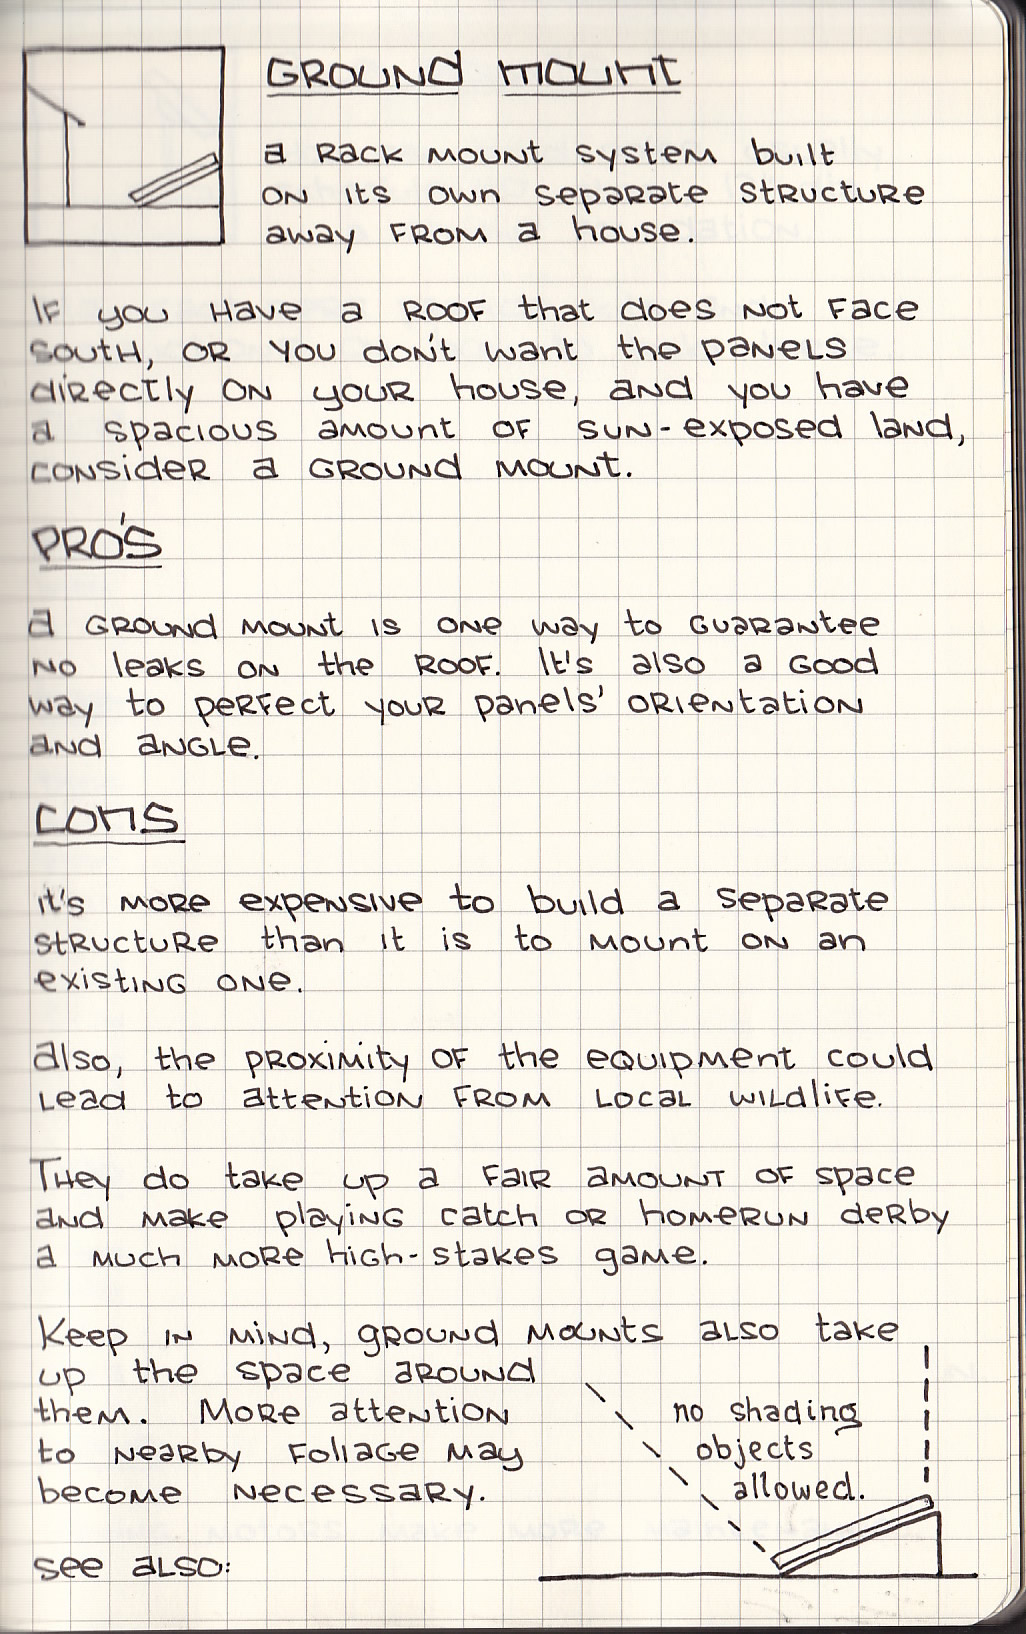 GROUND MOUNT
a Rack mount system built
on its own separate structure
away from a house.
If you have a roof that does not face
south, or you don't want the panels
directly on your house, and you have
a spacious amount of sun-exposed land,
consider a ground mount.
PRO'S
a ground mount is one way to guarantee
no leaks on the roof. It's also a good
way to perfect your panels' orientation
and angle.
CONS
it's more expensive to build a separate
structure than it is to mount on an
existing one.
also, the proximity of the equipment could
lead to attention from local wildlife.
They do take up a fair amount of space
and make playing catch or homerun derby
a much more high-stakes game.
Keep in mind, ground mounts also take
up the space around
them. More attention
to nearby foliage may
become necessary.
no shading
objects
allowed.
see also: